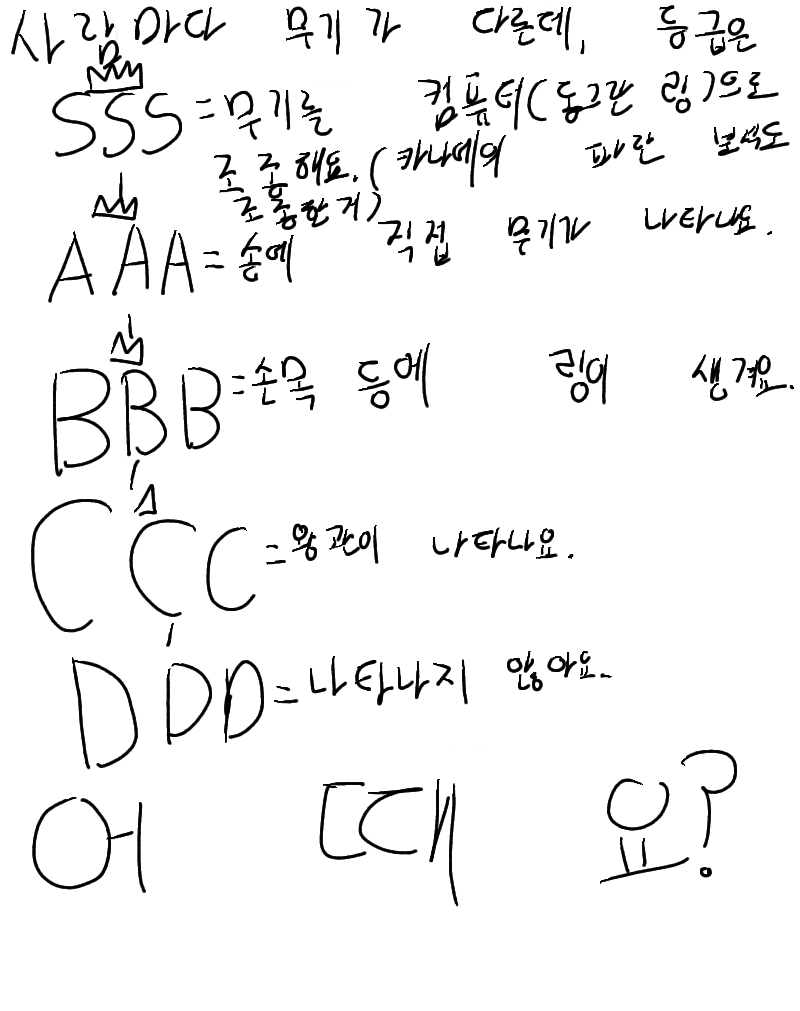 사람마다 무기가 다른데, 등급은
SSS = 무기를 컴퓨터(동그란 링)으로
조종해요. (카나메의 파란 보석도
조종한거)
AAA = 손에 직접 무기가 나타나요.
BBB = 손목 등에 링이 생겨요.
CCC = 왕관이 나타나요.
DDD = 나타나지 않아요.
어때요?